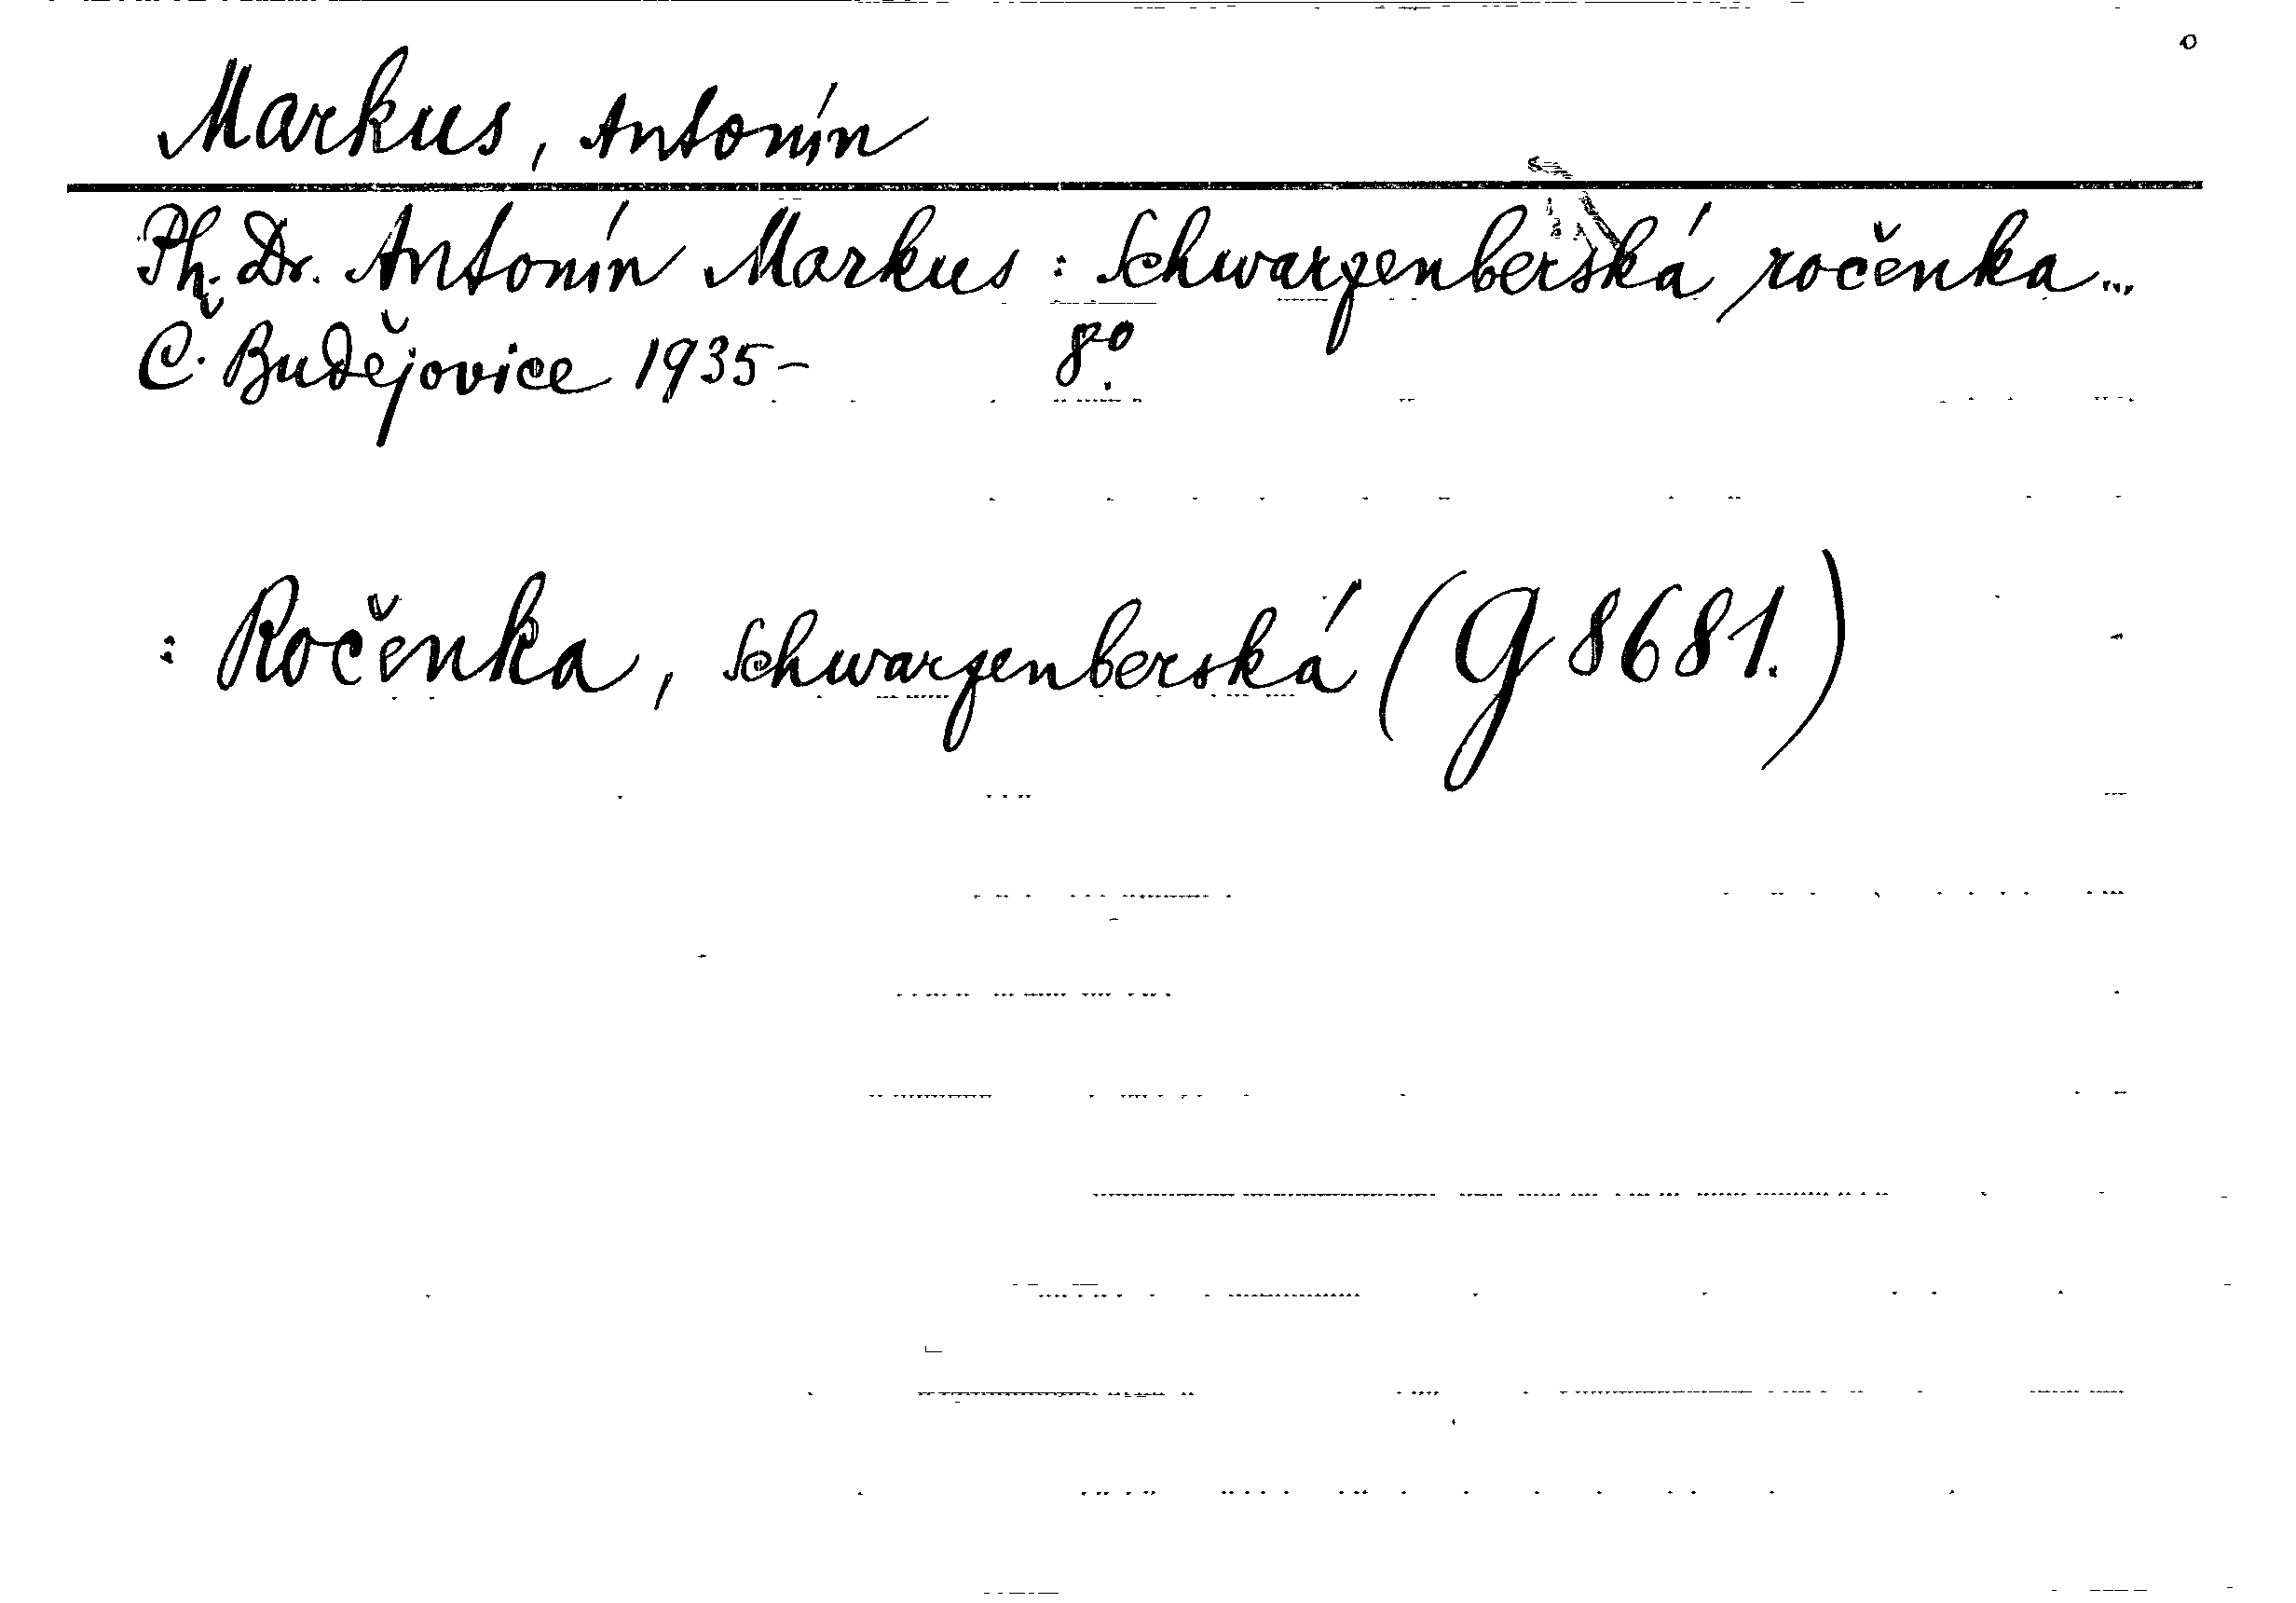 Markus, Antonín
Ph. Dr. Antonín Markus : Schwarzenberská ročenka...
Č. Budějovice 1935- 8º.
: Ročenka, Schwarzenberská (G 8681.)